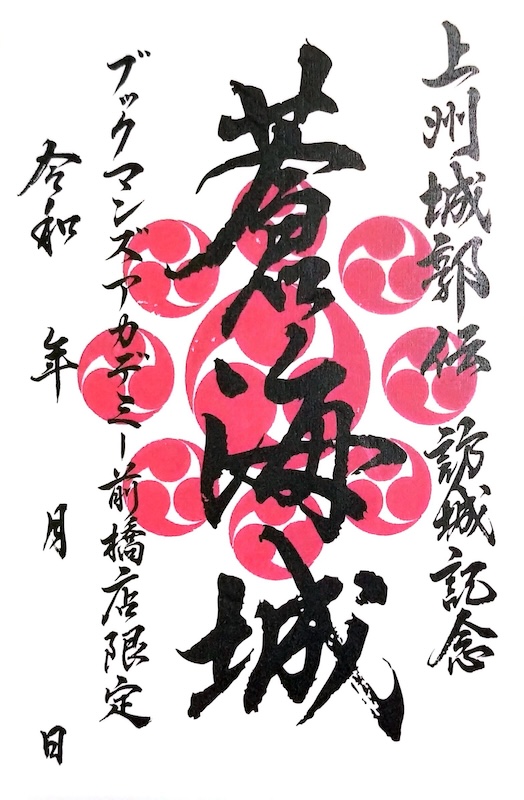 上州城郭伝 訪城記念
蒼海城
ブックマンズアカデミー前橋店限定
令和 年 月 日